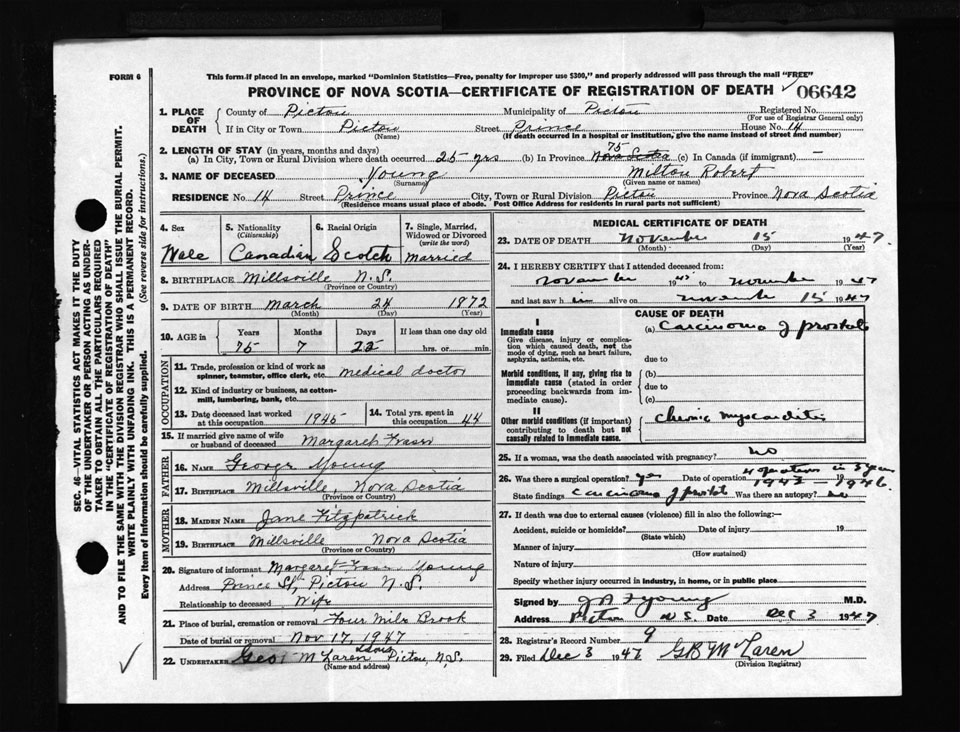 FORM 6
This form if placed in an envelope, marked "Dominion Statistics—Free, penalty for improper use $300," and properly addressed will pass through the mail "FREE"
PROVINCE OF NOVA SCOTIA—CERTIFICATE OF REGISTRATION OF DEATH ✓ 06642
1. PLACE OF DEATH
County of Pictou Municipality of Pictou Registered No.
(For use of Registrar General only)
If in City or Town Pictou Street Prince House No. 14
(Name) (If death occurred in a hospital or institution, give the name instead of street and number)
2. LENGTH OF STAY (in years, months and days)
(a) In City, Town or Rural Division where death occurred 25 yrs (b) In Province 75 Nova Scotia (c) In Canada (if immigrant) —
3. NAME OF DECEASED Young Milton Robert
(Surname) (Given name or names)
RESIDENCE No. 14 Street Prince City, Town or Rural Division Pictou Province Nova Scotia
(Residence means usual place of abode. Post Office Address for residents in rural parts not sufficient)
4. Sex Male
5. Nationality (Citizenship) Canadian
6. Racial Origin Scotch
7. Single, Married, Widowed or Divorced (write the word) Married
8. BIRTHPLACE Millsville N.S.
(Province or Country)
9. DATE OF BIRTH March 24 1872
(Month) (Day) (Year)
10. AGE in Years Months Days If less than one day old
75 7 22 hrs. or min.
OCCUPATION
11. Trade, profession or kind of work as spinner, teamster, office clerk, etc. medical doctor
12. Kind of industry or business, as cotton-mill, lumbering, bank, etc.
13. Date deceased last worked at this occupation 1945
14. Total yrs. spent in this occupation 44
15. If married give name of wife or husband of deceased Margaret Fraser
FATHER
16. NAME George Young
17. BIRTHPLACE Millsville, Nova Scotia
(Province or Country)
MOTHER
18. MAIDEN NAME Jane Fitzpatrick
19. BIRTHPLACE Millsville Nova Scotia
(Province or Country)
20. Signature of informant Margaret Fraser Young
Address Prince St, Pictou N.S.
Relationship to deceased Wife
21. Place of burial, cremation or removal Four Mile Brook
Date of burial or removal Nov 17, 1947
22. UNDERTAKER Geo McLaren Pictou, N.S.
(Name and address)
MEDICAL CERTIFICATE OF DEATH
23. DATE OF DEATH November 15 1947.
(Month) (Day) (Year)
24. I HEREBY CERTIFY that I attended deceased from:
November 1945 to November 1947
and last saw him alive on November 15 1947
CAUSE OF DEATH
I
Immediate cause
Give disease, injury or complication which caused death, not the mode of dying, such as heart failure, asphyxia, asthenia, etc.
(a) Carcinoma of prostate
due to
Morbid conditions, if any, giving rise to immediate cause (stated in order proceeding backwards from immediate cause).
(b)
due to
(c)
II
Other morbid conditions (if important) contributing to death but not causally related to immediate cause.
Chronic myocarditis
25. If a woman, was the death associated with pregnancy? no
26. Was there a surgical operation? yes Date of operation 4 operations in 3 years 1943 – 1946.
State findings Carcinoma of prostate Was there an autopsy? no
27. If death was due to external causes (violence) fill in also the following:—
Accident, suicide or homicide? Date of injury 19
(State which)
Manner of injury
(How sustained)
Nature of injury
Specify whether injury occurred in industry, in home, or in public place
Signed by Young M.D.
Address Pictou N.S. Date Dec 3 1947
28. Registrar's Record Number 9
29. Filed Dec 3 1947 GB McLaren
(Division Registrar)
SEC. 46—VITAL STATISTICS ACT MAKES IT THE DUTY OF THE UNDERTAKER OR PERSON ACTING AS UNDERTAKER TO OBTAIN ALL THE PARTICULARS REQUIRED IN THE "CERTIFICATE OF REGISTRATION OF DEATH"
AND TO FILE THE SAME WITH THE DIVISION REGISTRAR WHO SHALL ISSUE THE BURIAL PERMIT.
WRITE PLAINLY WITH UNFADING INK. THIS IS A PERMANENT RECORD.
Every item of information should be carefully supplied. (See reverse side for instructions.)